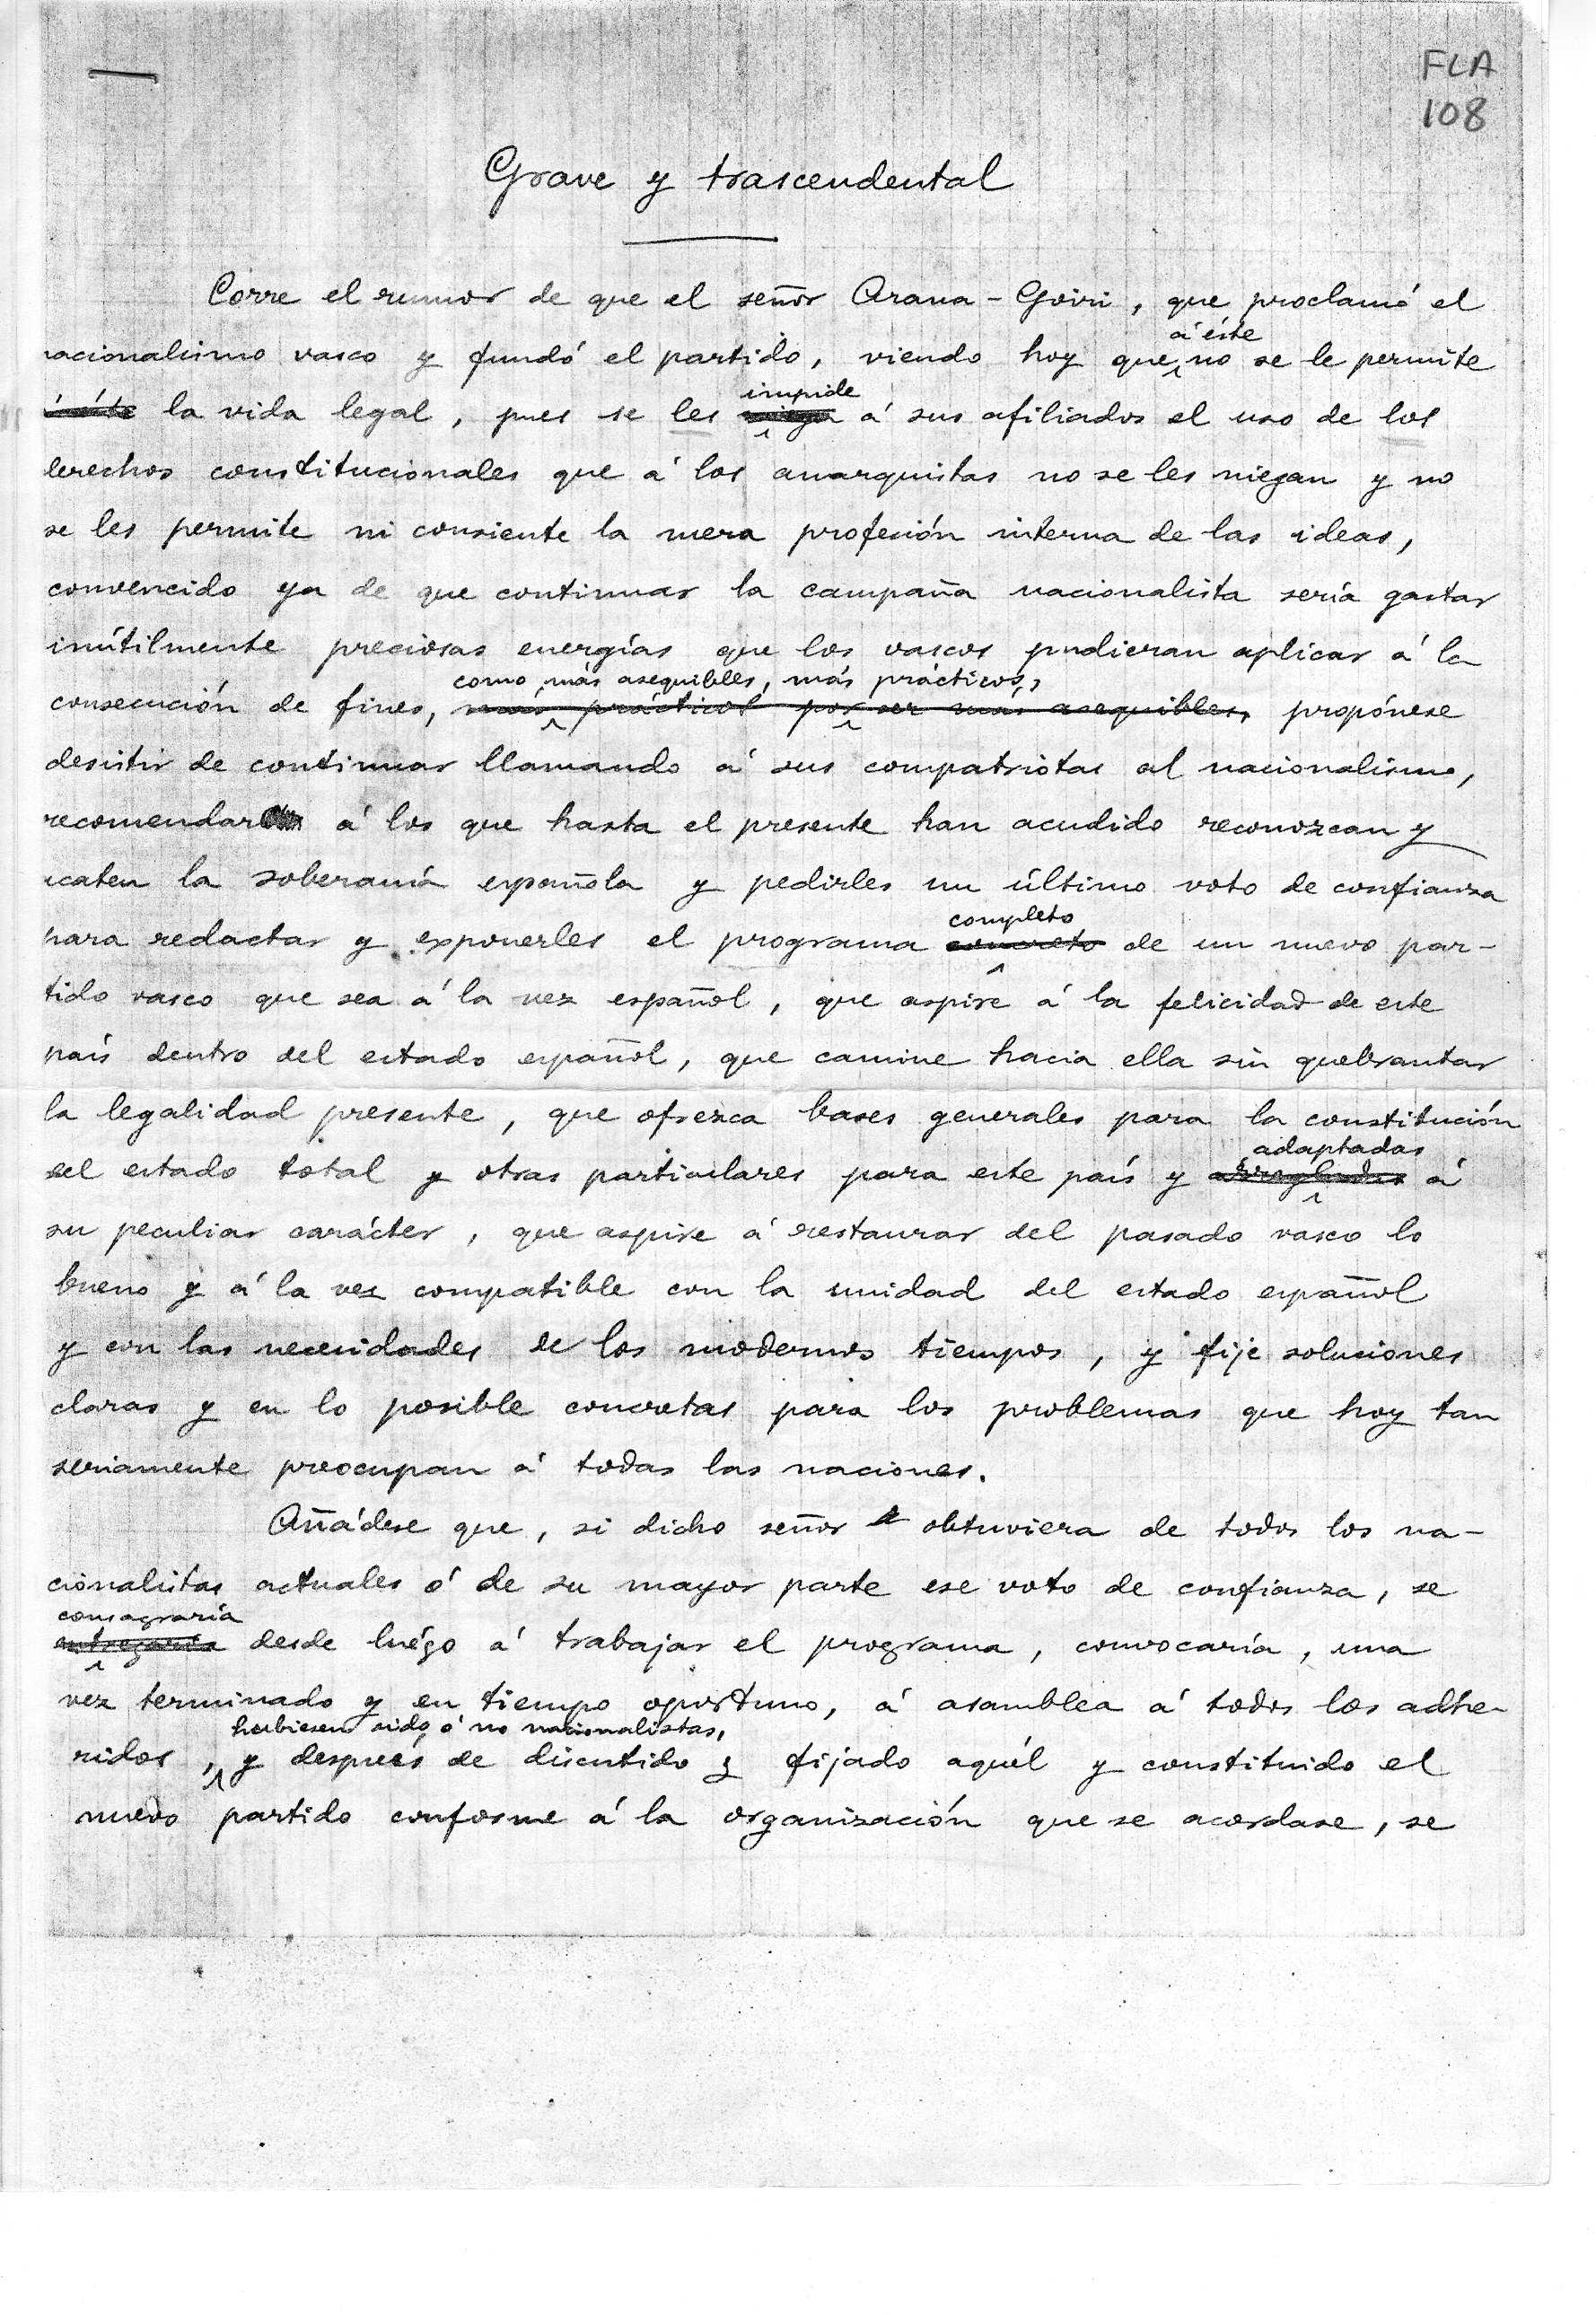 FLA
108
Grave y trascendental
Corre el rumor de que el señor Arana-Goiri, que proclamó el
á éste
nacionalismo vasco y fundó el partido, viendo hoy que no se le permite
impide
á éste la vida legal, pues se les niega á sus afiliados el uso de los
derechos constitucionales que á los anarquistas no se les niegan y no
se les permite ni consiente la mera profesión interna de las ideas,
convencido ya de que continuar la campaña nacionalista sería gastar
inútilmente preciosas energías que los vascos pudieran aplicar á la
como más asequibles, más prácticos,
consecución de fines, más prácticos por ser más asequibles, propónese
desistir de continuar llamando á sus compatriotas al nacionalismo,
recomendar á los que hasta el presente han acudido reconozcan y
acaten la soberanía española y pedirles un último voto de confianza
completo
para redactar y exponerles el programa concreto de un nuevo par-
tido vasco que sea á la vez español, que aspire á la felicidad de este
país dentro del estado español, que camine hacia ella sin quebrantar
la legalidad presente, que ofrezca bases generales para la constitución
adaptadas
del estado total y otras particulares para este país y arregladas á
su peculiar carácter, que aspire á restaurar del pasado vasco lo
bueno y á la vez compatible con la unidad del estado español
y con las necesidades de los modernos tiempos, y fije soluciones
claras y en lo posible concretas para los problemas que hoy tan
seriamente preocupan á todas las naciones.
Añádese que, si dicho señor obtuviera de todos los na-
cionalistas actuales ó de su mayor parte ese voto de confianza, se
consagraría
entregaría desde luégo á trabajar el programa, convocaría, una
vez terminado y en tiempo oportuno, á asamblea á todos los adhe-
hubiesen sido ó no nacionalistas,
ridos, y después de discutido y fijado aquél y constituido el
nuevo partido conforme á la organización que se acordase, se